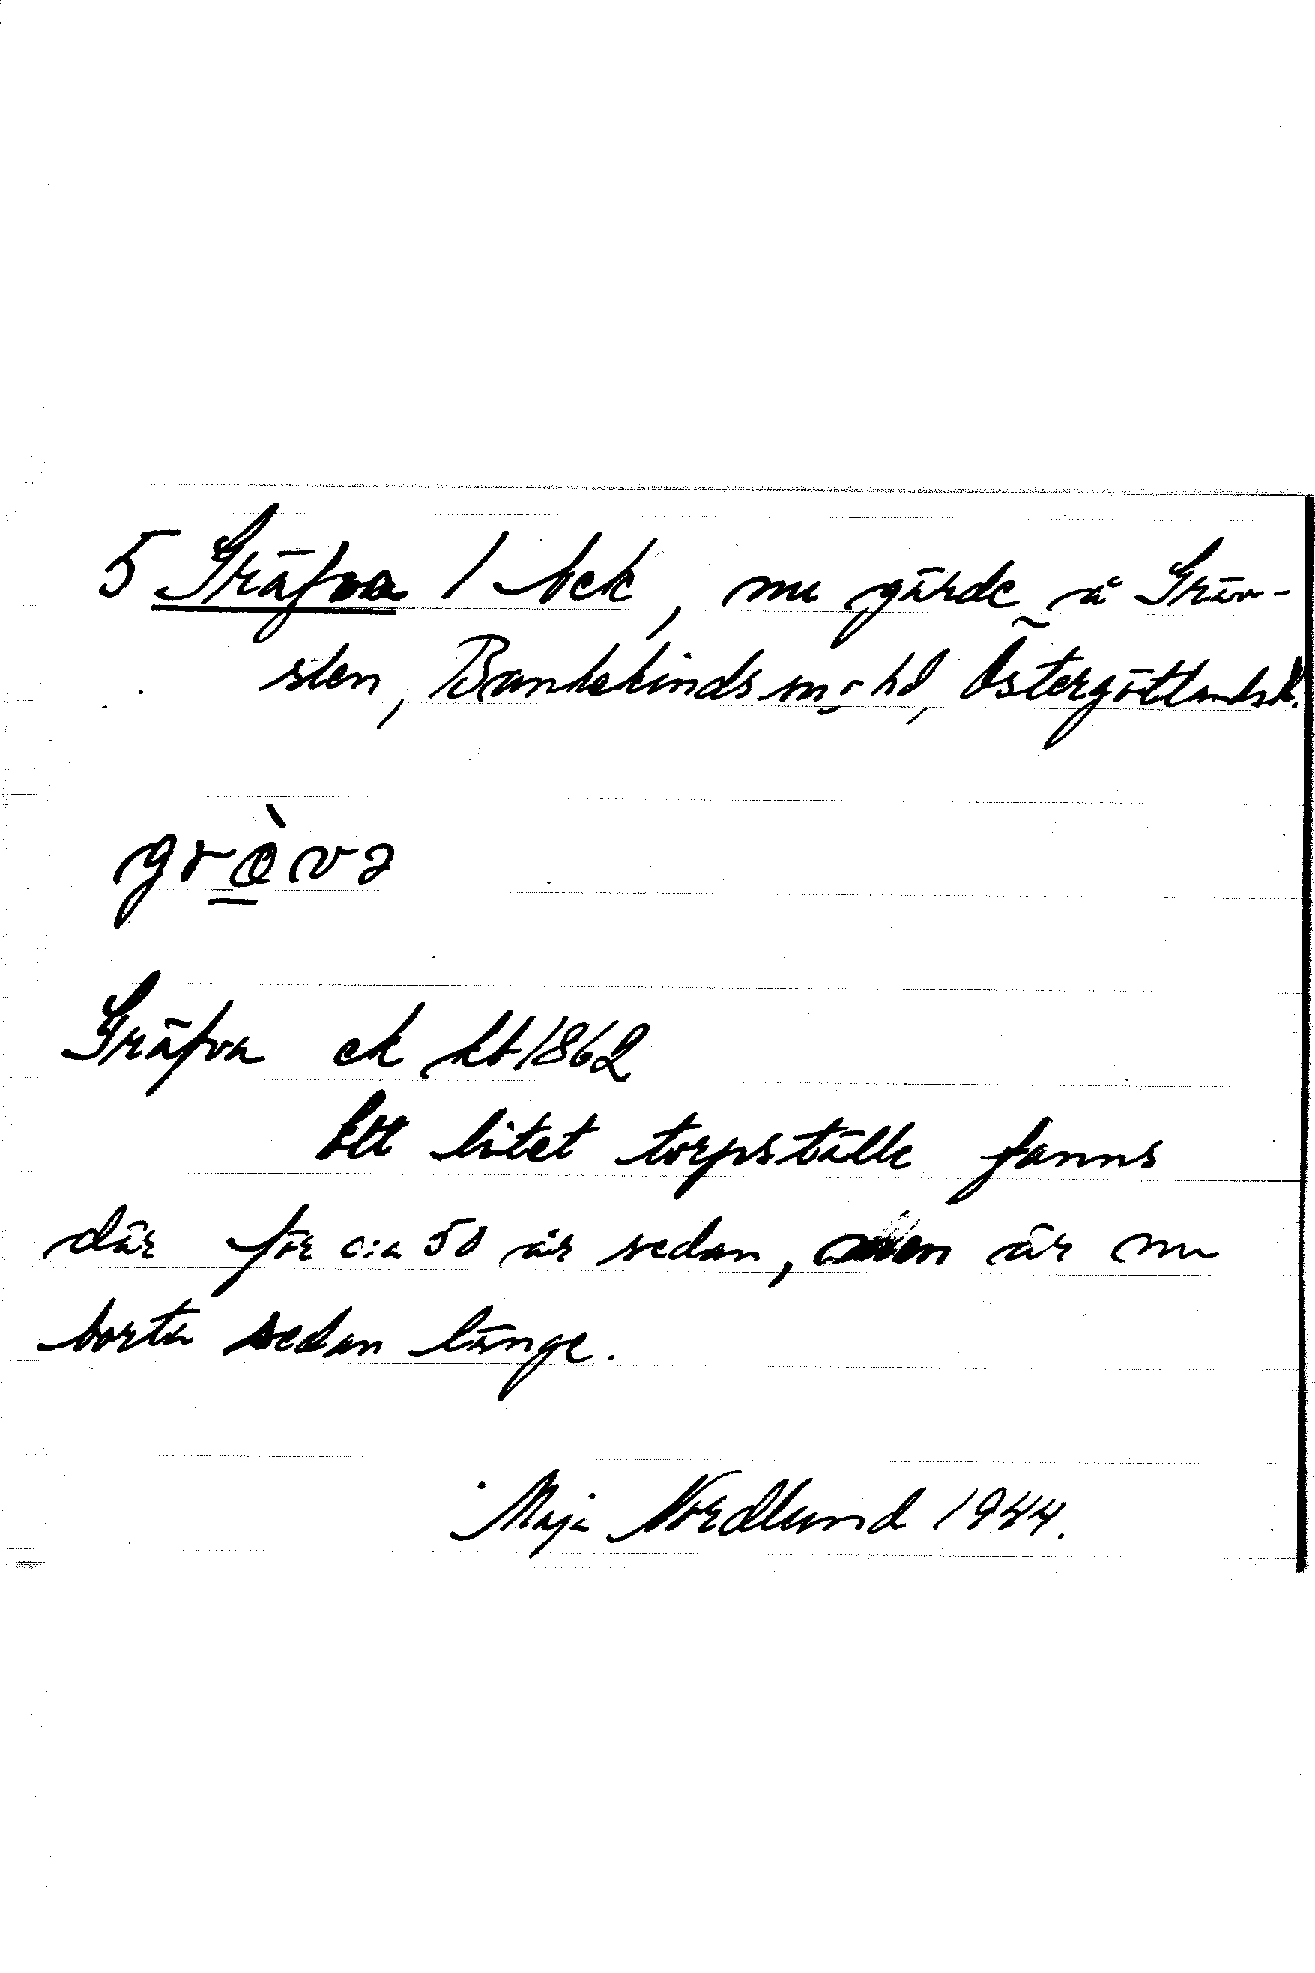 5 Gräfva / bek, nu gärde å Gräv-
sten, Bankekinds sn o hd, Östergötlands l.
grävə
Gräfva ek kb 1862
Ett litet torpställe fanns
där för c:a 50 år sedan, men är nu
borta sedan länge.
Maja Nordlund 1944.